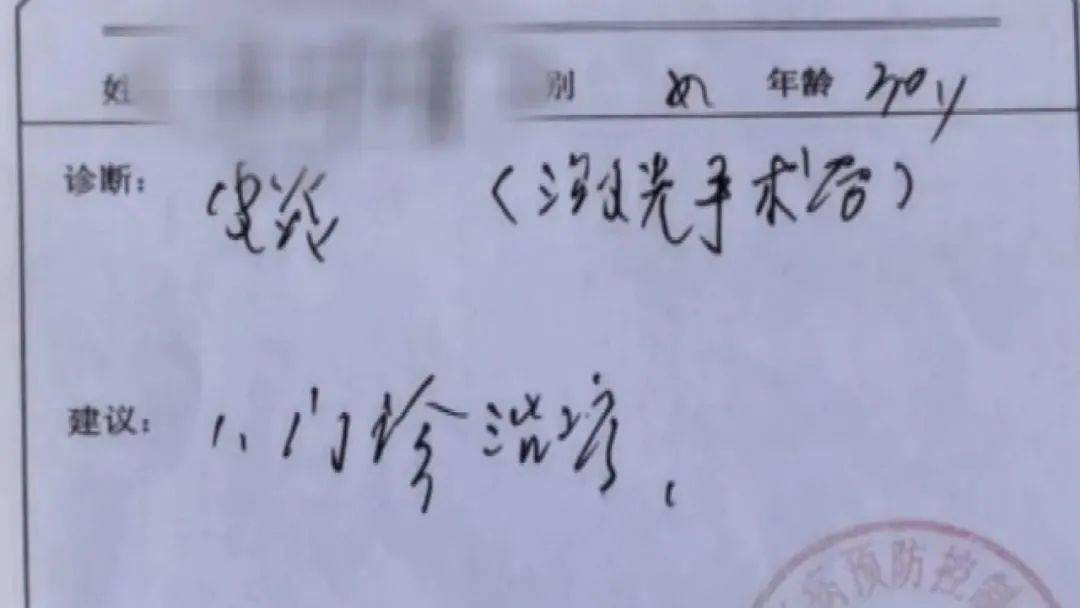 姓 别 女 年龄 30y
诊断: 皮炎 (激光手术后)
建议: 1、门诊治疗.
病预防控制